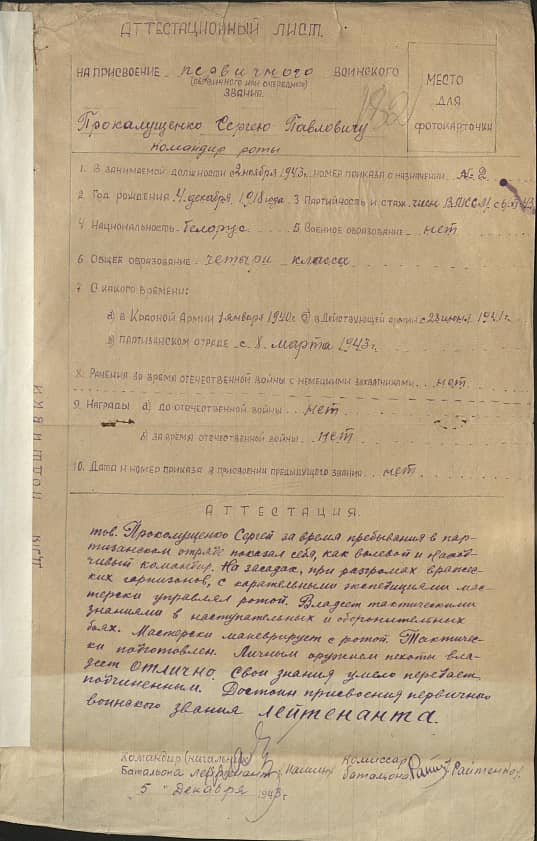 АТТЕСТАЦИОННЫЙ ЛИСТ.
НА ПРИСВОЕНИЕ первичного ВОИНСКОГО
(ПЕРВИЧНОГО ИЛИ ОЧЕРЕДНОГО)
ЗВАНИЯ.
МЕСТО
ДЛЯ
ФОТОКАРТОЧКИ
Прокамущенко Сергею Павловичу
командир роты
1. В ЗАНИМАЕМОЙ ДОЛЖНОСТИ с 2 ноября 1943 г. НОМЕР ПРИКАЗА О НАЗНАЧЕНИИ № 2
2. ГОД РОЖДЕНИЯ 4 декабря 1918 года 3 ПАРТИЙНОСТЬ И СТАЖ. член ВЛКСМ с
4 НАЦИОНАЛЬНОСТЬ белорус 5 ВОЕННОЕ ОБРАЗОВАНИЕ нет
6 ОБЩЕЕ ОБРАЗОВАНИЕ четыри класса
7 С КАКОГО ВРЕМЕНИ:
а) В КРАСНОЙ АРМИИ 1 января 1940 г. б) В ДЕЙСТВУЮЩЕЙ АРМИИ с 28 июня 1941 г.
в) ПАРТИЗАНСКОМ ОТРЯДЕ с 8 марта 1943 г.
8. РАНЕНИЯ ЗА ВРЕМЯ ОТЕЧЕСТВЕННОЙ ВОЙНЫ С НЕМЕЦКИМИ ЗАХВАТЧИКАМИ нет
9. НАГРАДЫ а) ДО ОТЕЧЕСТВЕННОЙ ВОЙНЫ нет
б) ЗА ВРЕМЯ ОТЕЧЕСТВЕННОЙ ВОЙНЫ нет
10. ДАТА И НОМЕР ПРИКАЗА О ПРИСВОЕНИИ ПРЕДЫДУЩЕГО ЗВАНИЯ нет
АТТЕСТАЦИЯ.
тов. Прокамущенко Сергей за время пребывания в пар-
тизанском отряде показал себя, как волевой и находчивый
командир. На засадах, при разгромах вражес-
ких горнизонов, с карательными экспедициями мас-
терски управлял ротой. Владеет тактическими
знаниями в наступательных и оборонительных
боях. Мастерски маневрирует с ротой. Тактичес-
ки подготовлен. Личным оружием пехоты вла-
деет ОТЛИЧНО. Свои знания умело передает
подчиненным. Достоин присвоения первичного
воинского звания лейтенанта.
Командир (начальник)
Батальона лейтенант
Комиссар
батальона Райтенков
5 " Декабря 1943 г.
ДЛЯ ПОДШИВКИ